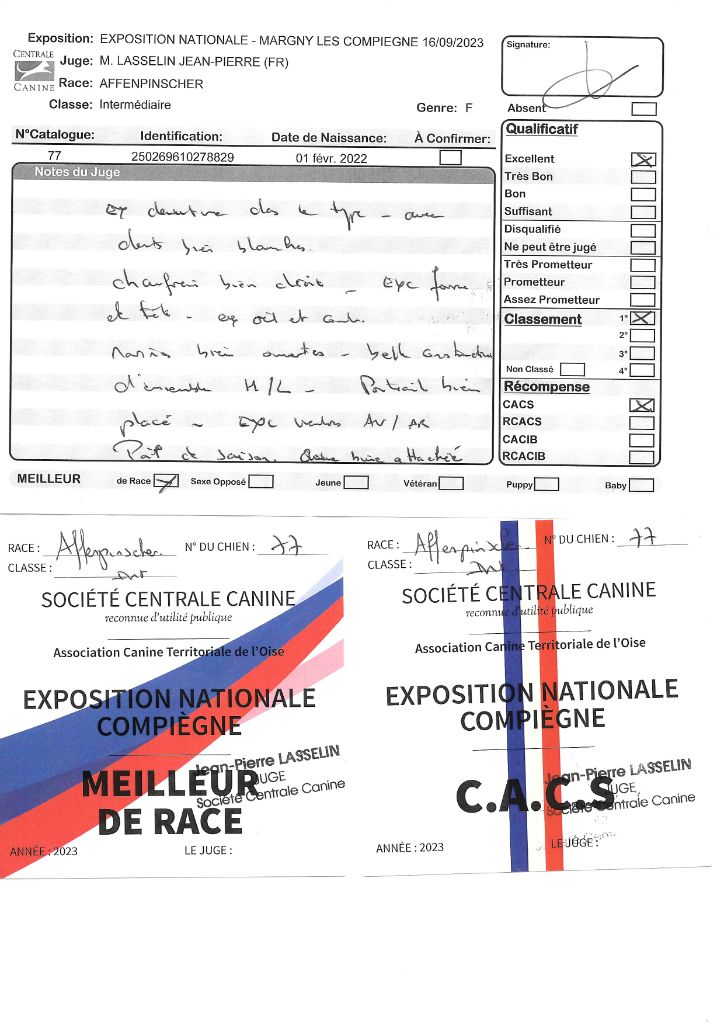 Exposition: EXPOSITION NATIONALE - MARGNY LES COMPIEGNE 16/09/2023
CENTRALE
CANINE
Juge: M. LASSELIN JEAN-PIERRE (FR)
Race: AFFENPINSCHER
Classe: Intermédiaire
Genre: F
Signature:
Absent
N°Catalogue: Identification: Date de Naissance: À Confirmer:
77 250269610278829 01 févr. 2022
Notes du Juge
dans le type - avec
dents bien blanches.
chanfrein bien droit - exc forme
de tête - ex oeil et
Narines bien ouvertes - belle construction
d'ensemble H/L - bien
placé - AV/AR
de saison. bien attachée
Qualificatif
Excellent
Très Bon
Bon
Suffisant
Disqualifié
Ne peut être jugé
Très Prometteur
Prometteur
Assez Prometteur
Classement 1°
2°
3°
Non Classé 4°
Récompense
CACS
RCACS
CACIB
RCACIB
MEILLEUR de Race Sexe Opposé Jeune Vétéran Puppy Baby
RACE : Affenpinscher N° DU CHIEN : 77
CLASSE : Int
SOCIÉTÉ CENTRALE CANINE
reconnue d'utilité publique
Association Canine Territoriale de l'Oise
EXPOSITION NATIONALE
COMPIÈGNE
MEILLEUR
DE RACE
Jean-Pierre LASSELIN
JUGE
Société Centrale Canine
ANNÉE : 2023 LE JUGE :
RACE : Affenpinscher N° DU CHIEN : 77
CLASSE : Int
SOCIÉTÉ CENTRALE CANINE
reconnue d'utilité publique
Association Canine Territoriale de l'Oise
EXPOSITION NATIONALE
COMPIÈGNE
C.A.C.S
Jean-Pierre LASSELIN
JUGE
Société Centrale Canine
ANNÉE : 2023 LE JUGE :